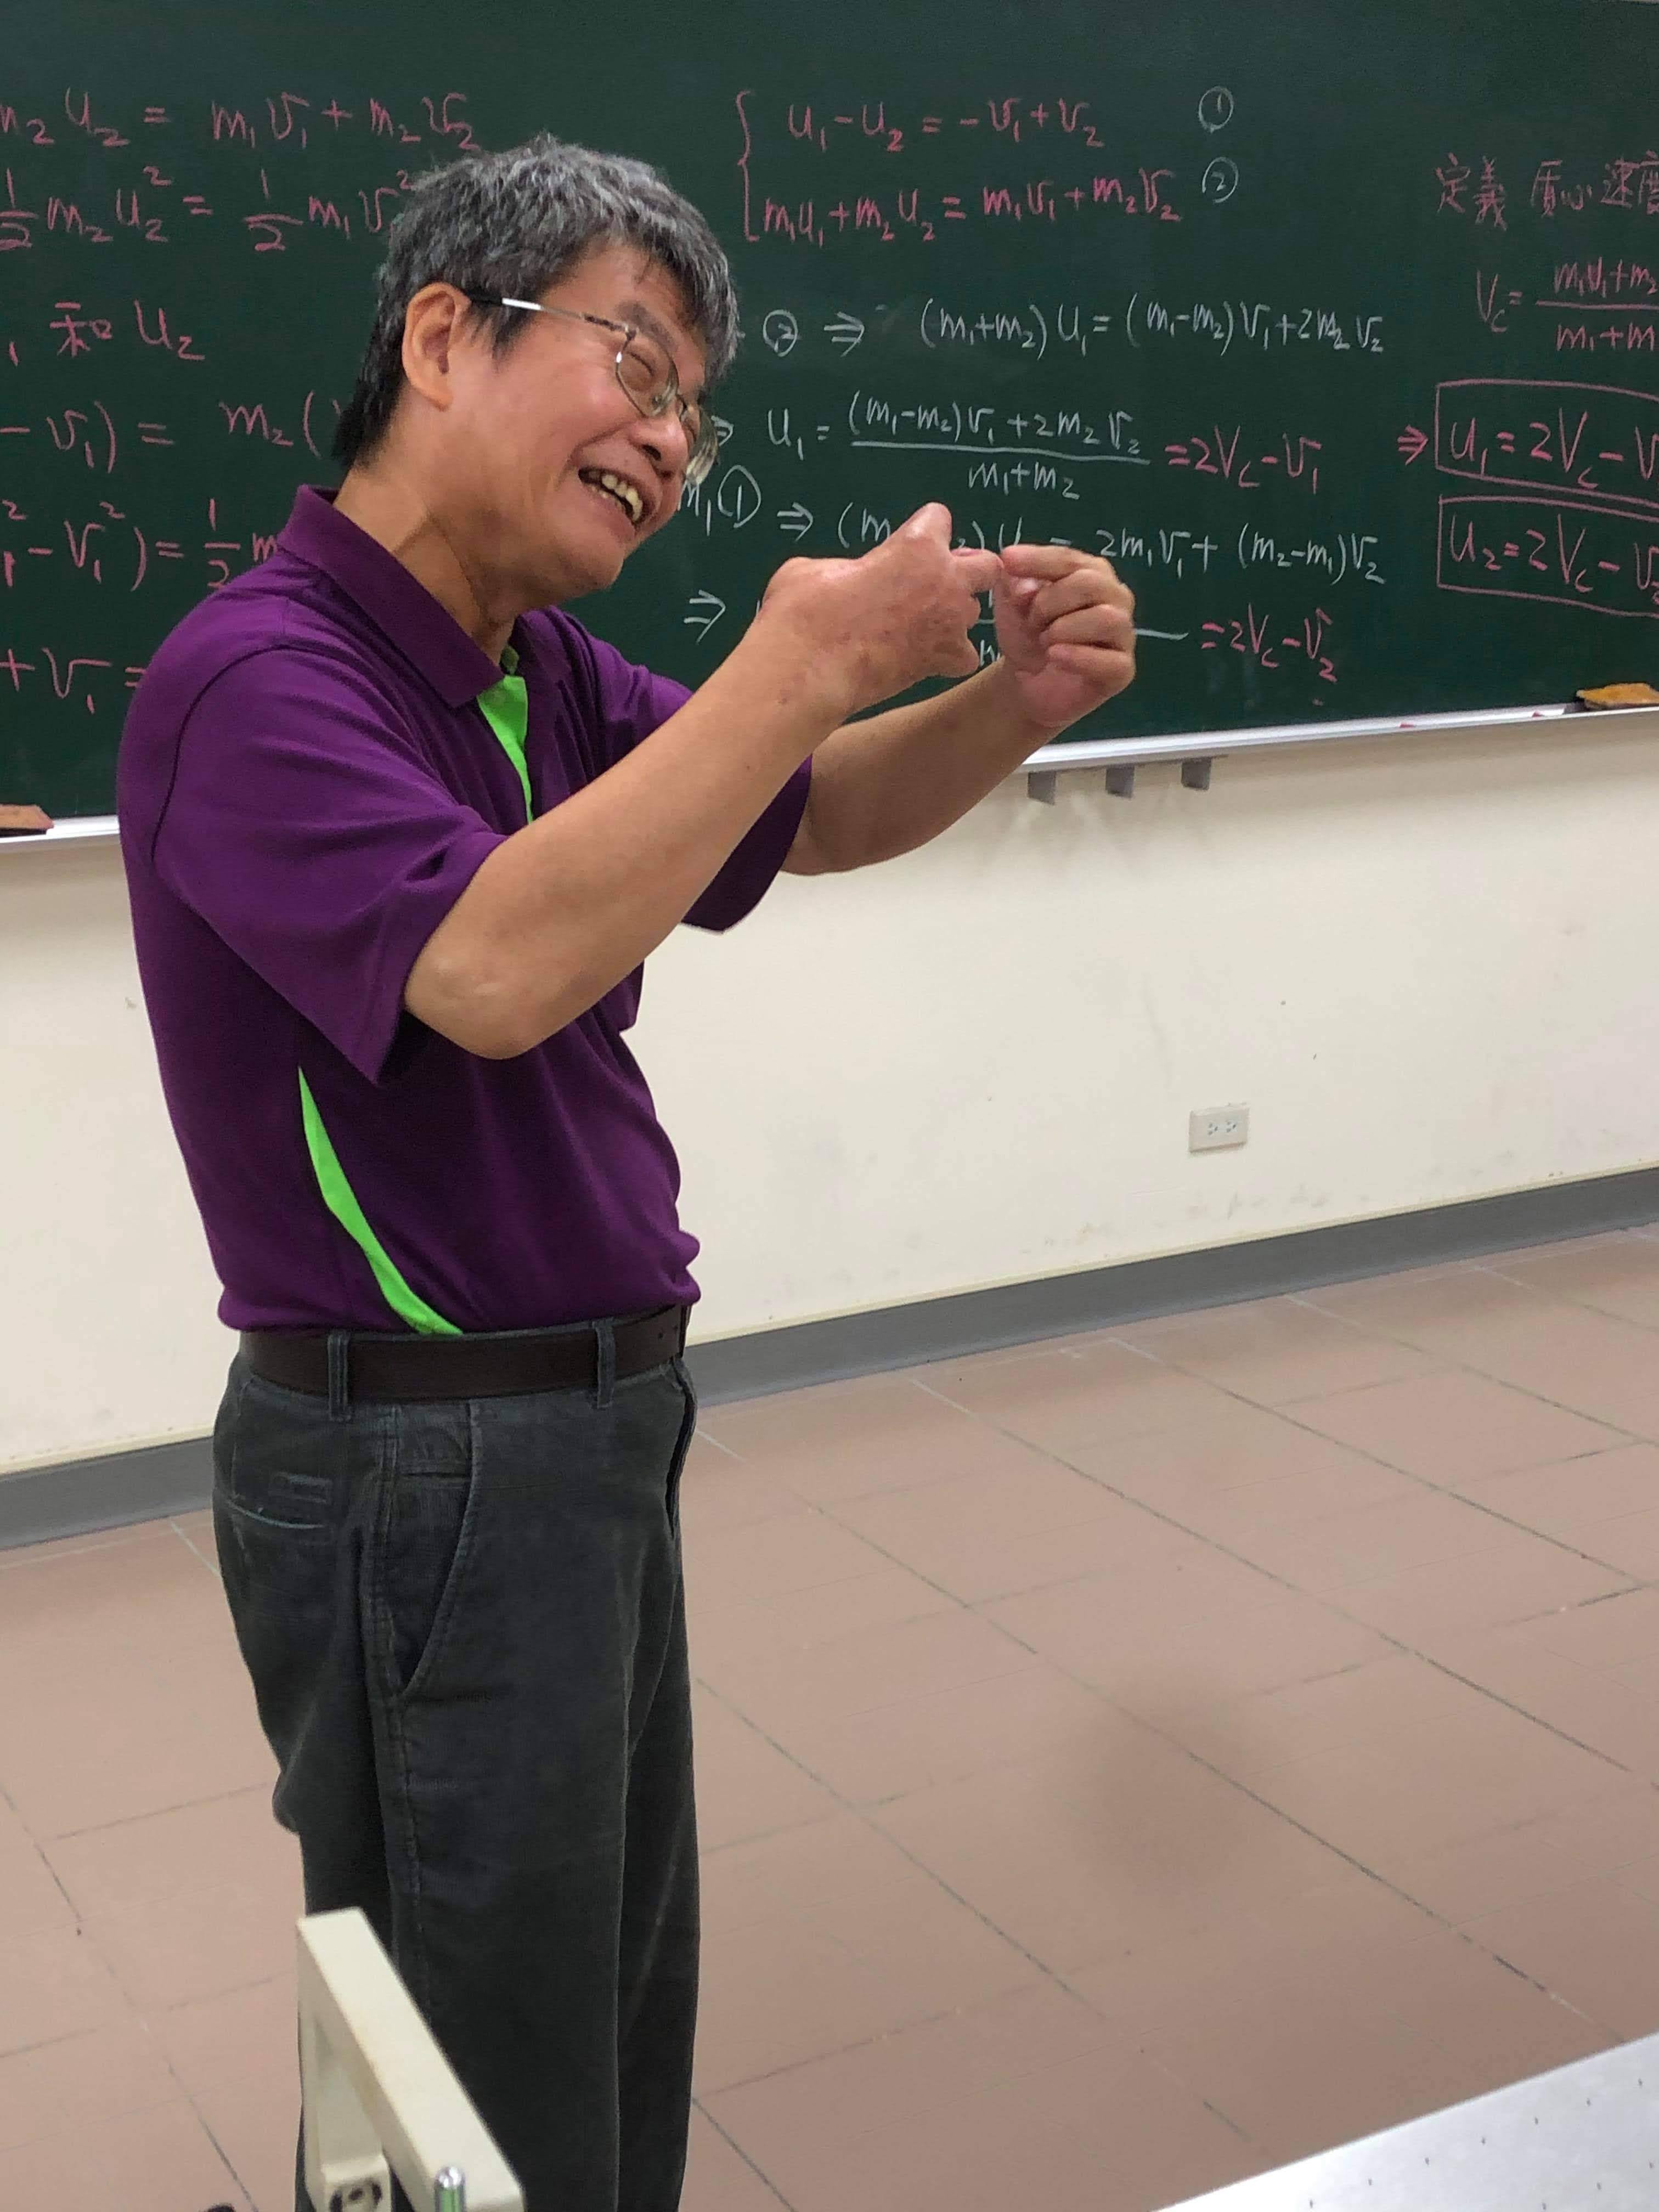 m₂u₂ = m₁v₁ + m₂v₂
½m₂u₂² = ½m₁v₁²
, 和 u₂
- v₁) = m₂(
- v₁²) = ½m
+ v₁ =
{ u₁ - u₂ = -v₁ + v₂ ①
m₁u₁ + m₂u₂ = m₁v₁ + m₂v₂ ②
② ⇒ (m₁+m₂)u₁ = (m₁-m₂)v₁ + 2m₂v₂
⇒ u₁ = ((m₁-m₂)v₁ + 2m₂v₂)/(m₁+m₂) = 2Vc - v₁
m₁① ⇒ (m₁ 2) u = 2m₁v₁ + (m₂-m₁)v₂
⇒ = 2Vc - v₂
定義 質心速度
Vc = m₁v₁+m₂ / m₁+m
⇒ u₁ = 2Vc - v
u₂ = 2Vc - v₂